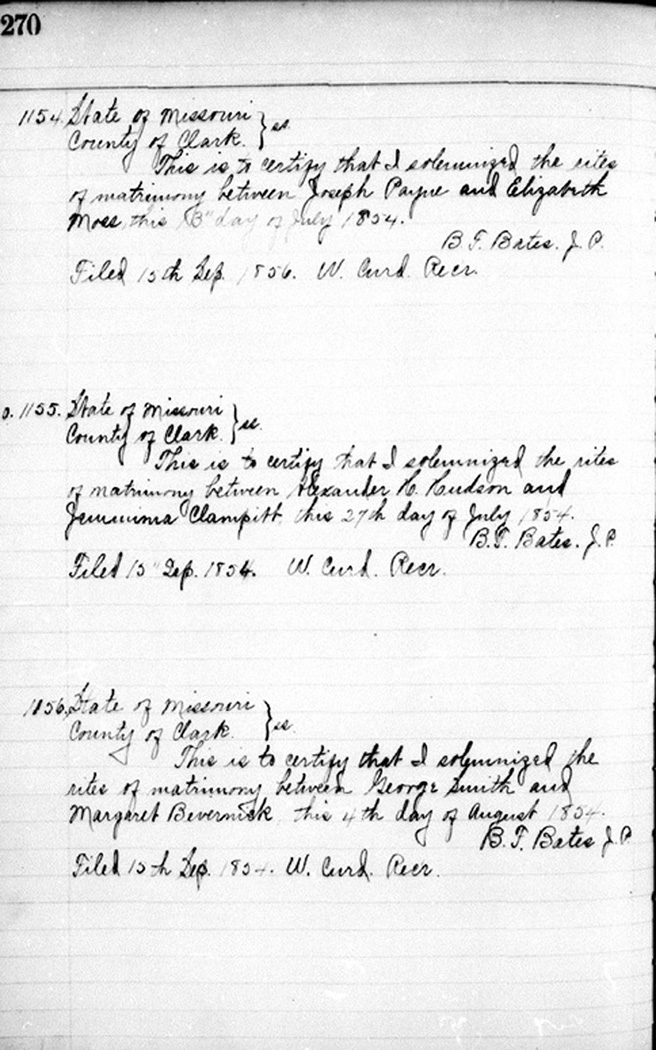 270
1154. State of Missouri
County of Clark. } ss.
This is to certify that I solemnized the rites
of matrimony between Joseph Payne and Elizabeth
Moss, this 13" day of July 1854.
B. F. Bates. J. P.
Filed 15th Sep. 1856. W. Curd. Recr.
o. 1155. State of Missouri
County of Clark. } ss.
This is to certify that I solemnized the rites
of matrimony between Alexander H. Hudson and
Jemmima Clampitt, this 27th day of July 1854.
B. F. Bates. J. P.
Filed 15" Sep. 1854. W. Curd. Recr.
1156. State of Missouri
County of Clark. } ss.
This is to certify that I solemnized the
rites of matrimony between George Smith and
Margaret Bevernick this 4th day of August 1854.
B. F. Bates J. P.
Filed 15th Sep. 1854. W. Curd. Recr.